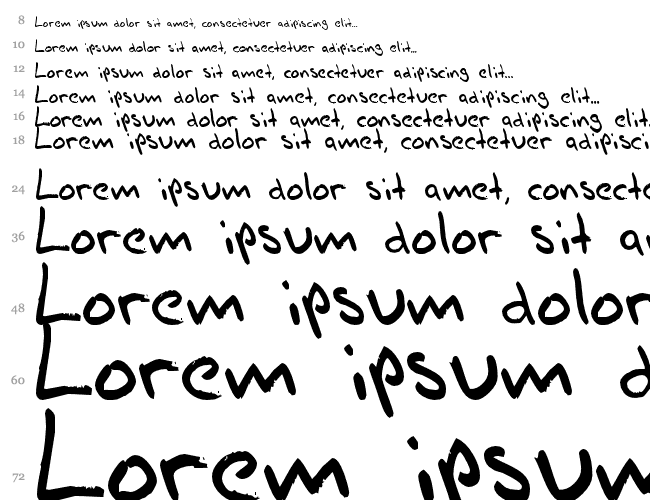 8 Lorem ipsum dolor sit amet, consectetuer adipiscing elit...
10 Lorem ipsum dolor sit amet, consectetuer adipiscing elit...
12 Lorem ipsum dolor sit amet, consectetuer adipiscing elit...
14 Lorem ipsum dolor sit amet, consectetuer adipiscing elit...
16 Lorem ipsum dolor sit amet, consectetuer adipiscing elit.
18 Lorem ipsum dolor sit amet, consectetuer adipisci
24 Lorem ipsum dolor sit amet, consecte
36 Lorem ipsum dolor sit a
48 Lorem ipsum dolor
60 Lorem ipsum d
72 Lorem ipsum